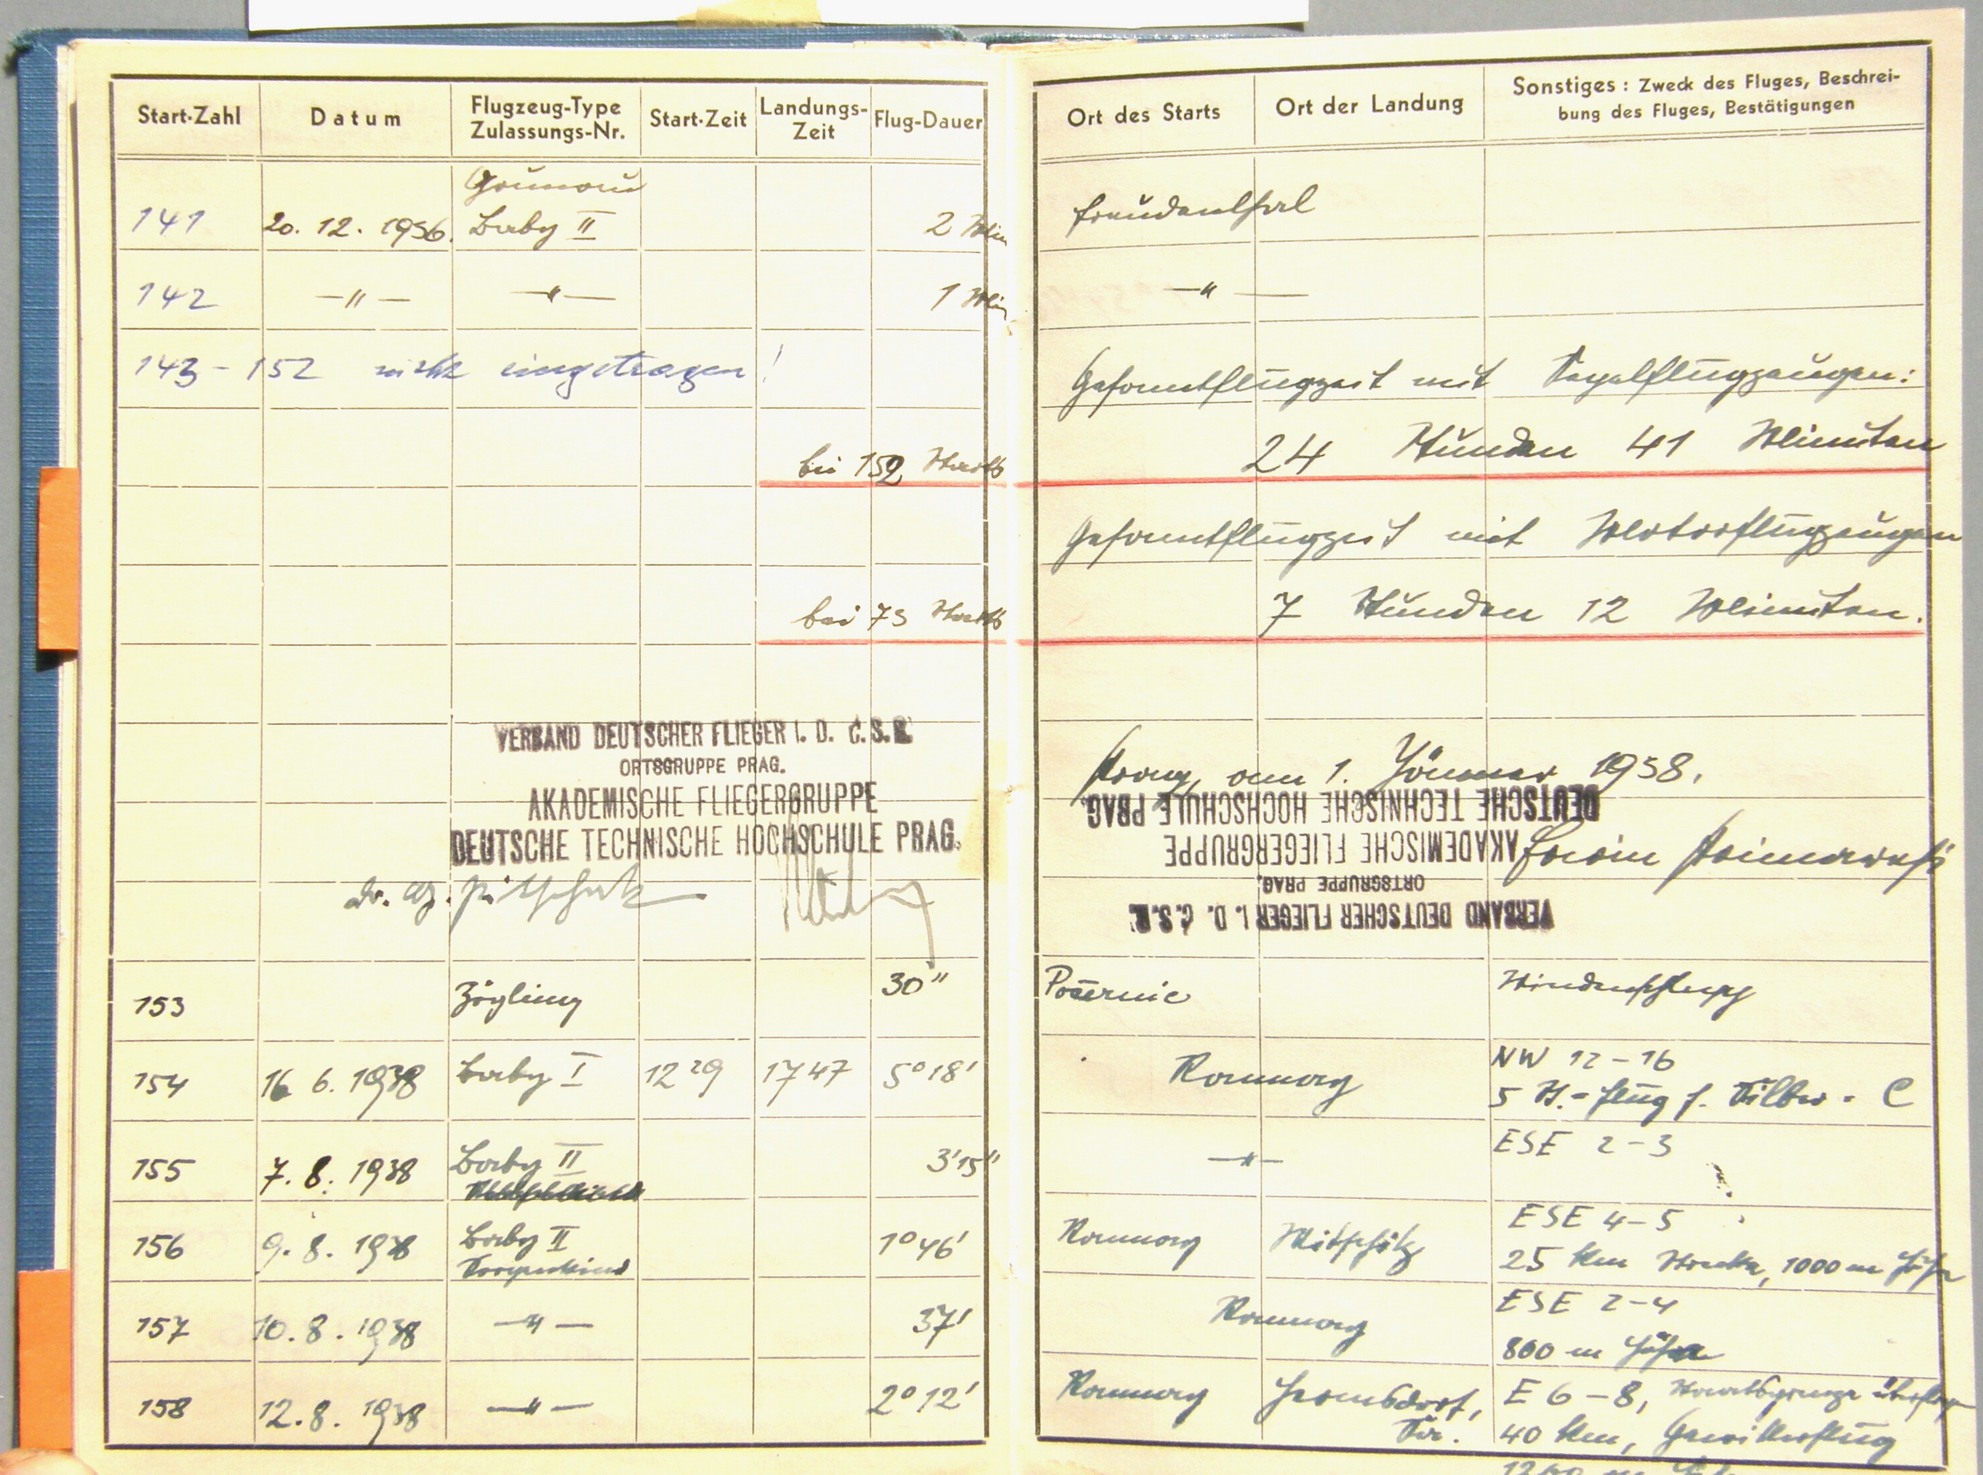 Start-Zahl
Datum
Flugzeug-Type
Zulassungs-Nr.
Start-Zeit
Landungs-
Zeit
Flug-Dauer
Ort des Starts
Ort der Landung
Sonstiges: Zweck des Fluges, Beschrei-
bung des Fluges, Bestätigungen
Grunau
141 20. 12. 1936. Baby II 2 Min Freudenthal
142 —"— —"— 1 Min —"—
143-152 nicht eingetragen! Gesamtflugzeit mit Segelflugzeugen:
bei 152 Starts 24 Stunden 41 Minuten
Gesamtflugzeit mit Motorflugzeugen
bei 73 Starts 7 Stunden 12 Minuten.
VERBAND DEUTSCHER FLIEGER I. D. Č.S.R.
ORTSGRUPPE PRAG.
AKADEMISCHE FLIEGERGRUPPE
DEUTSCHE TECHNISCHE HOCHSCHULE PRAG.
Prag, am 1. Jänner 1938.
DEUTSCHE TECHNISCHE HOCHSCHULE PRAG.
AKADEMISCHE FLIEGERGRUPPE
ORTSGRUPPE PRAG.
VERBAND DEUTSCHER FLIEGER I. D. Č.S.R.
Dr.
153 Zögling 30" Počernic Windenschlepp
154 16 6. 1938 Baby I 12 29 17 47 5° 18' Rannay NW 12-16
5 St.-Flug f. Silber-C
155 7. 8. 1938 Baby II 3'15" —"— ESE 2-3
156 9. 8. 1938 Baby II 1° 46' Rannay ESE 4-5
25 km Strecke, 1000 m Höhe
157 10. 8. 1938 —"— 37' Rannay ESE 2-4
800 m Höhe
158 12. 8. 1938 —"— 2° 12' Rannay E 6-8, Staatsgrenze
40 km, Gewitterflug